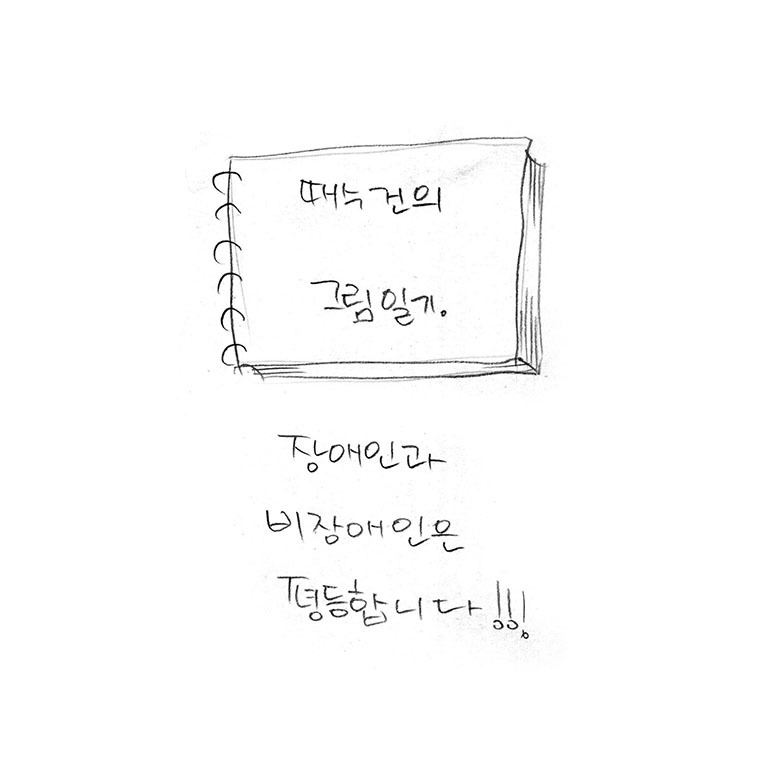 때누건의
그림일기.
장애인과
비장애인은
평등합니다!!!